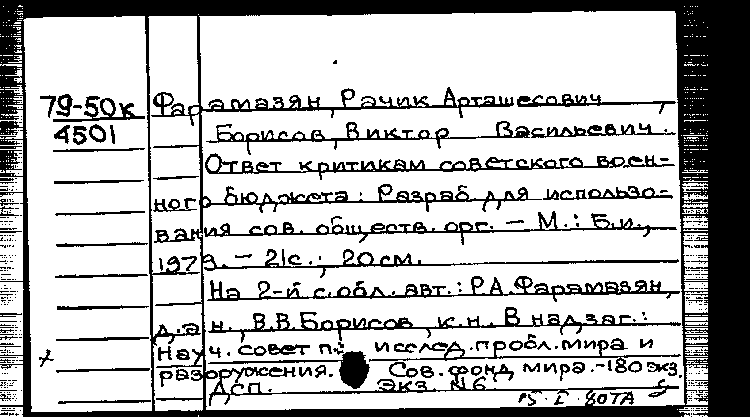 79-50к Фарамазян, Рачик Арташесович,
4501 Борисов, Виктор Васильевич.
Ответ критикам советского воен-
ного бюджета: Разраб для использо-
вания сов. обществ. орг. - М.: Б.и.,
1979. - 21с.; 20см.
На 2-й с.обл. авт.: Р.А.Фарамазян,
д.э.н., В.В.Борисов, к.н.. В надзаг.:
Науч. совет по исслед. пробл. мира и
разоружения. Сов. фонд мира.-180экз.
Дсп. экз. №6